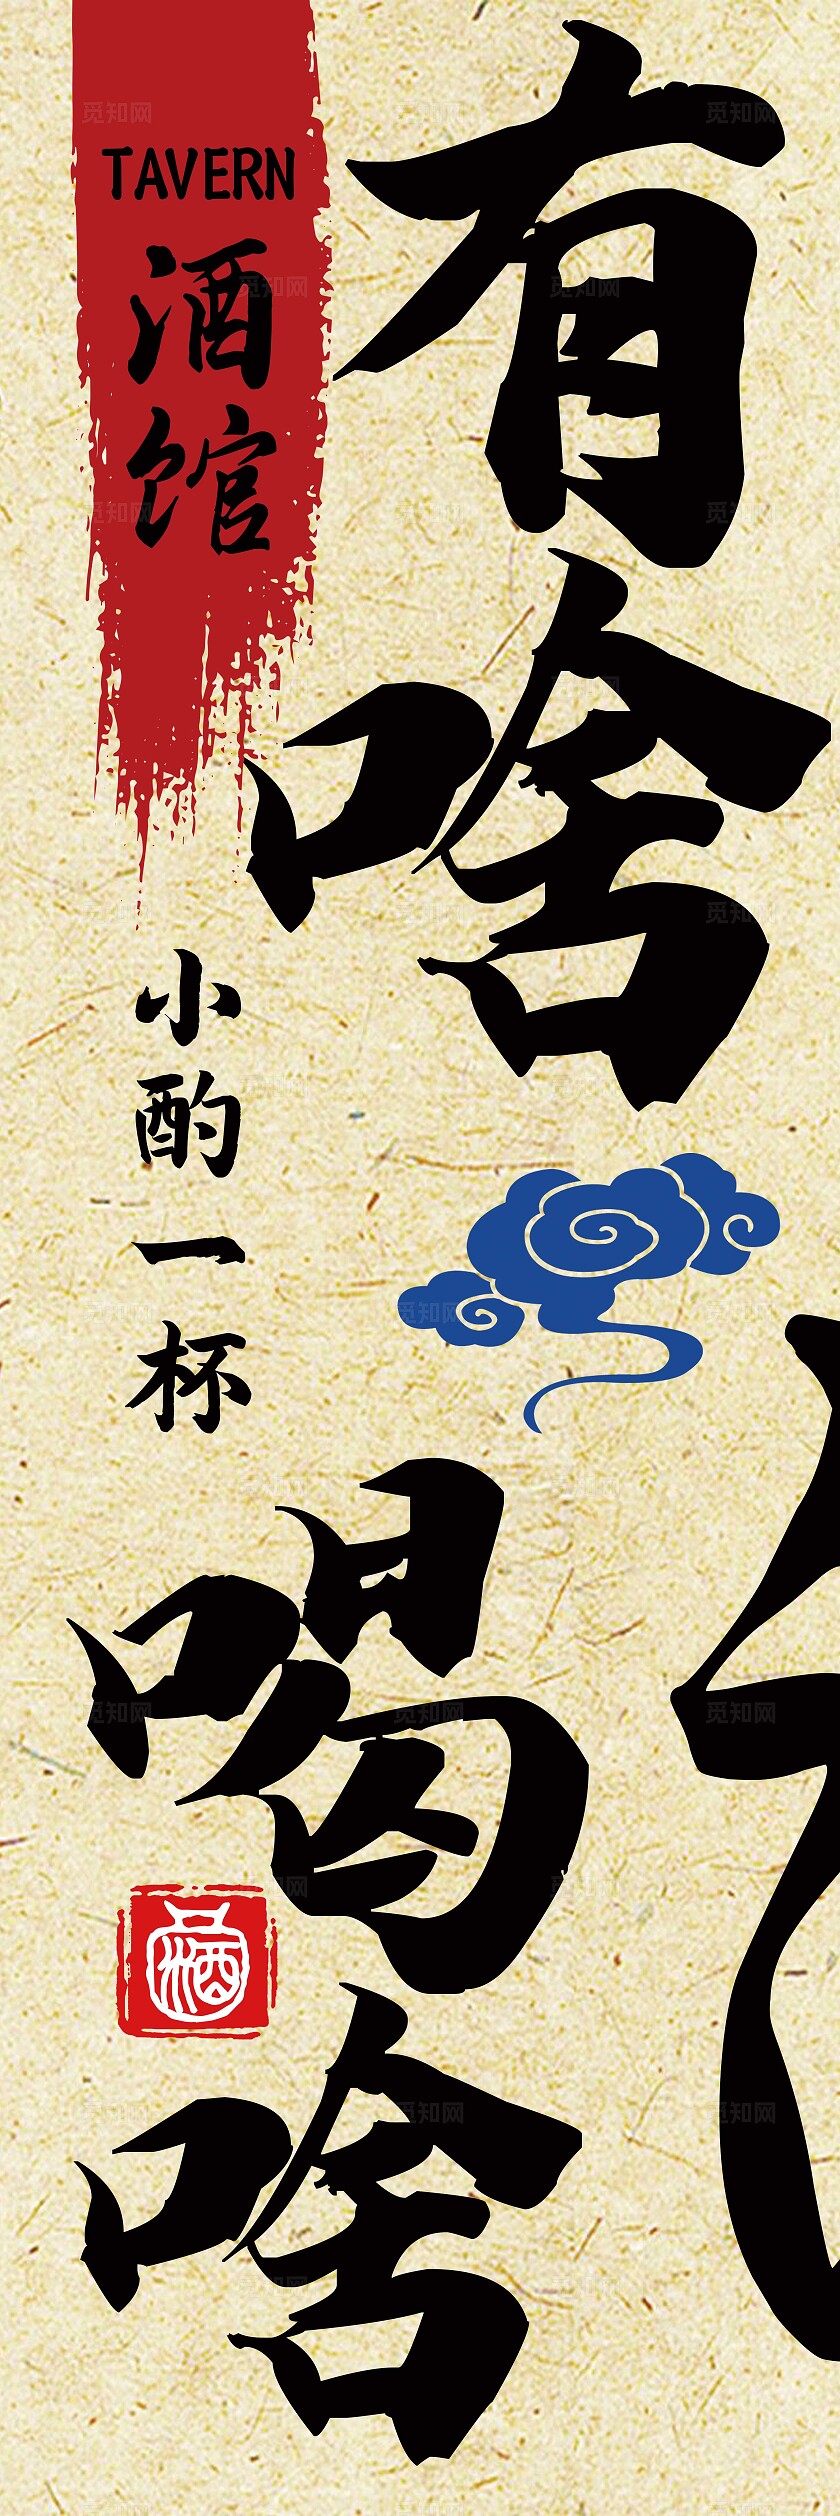 有啥
喝啥
TAVERN
酒馆
小酌一杯
酒
觅知网